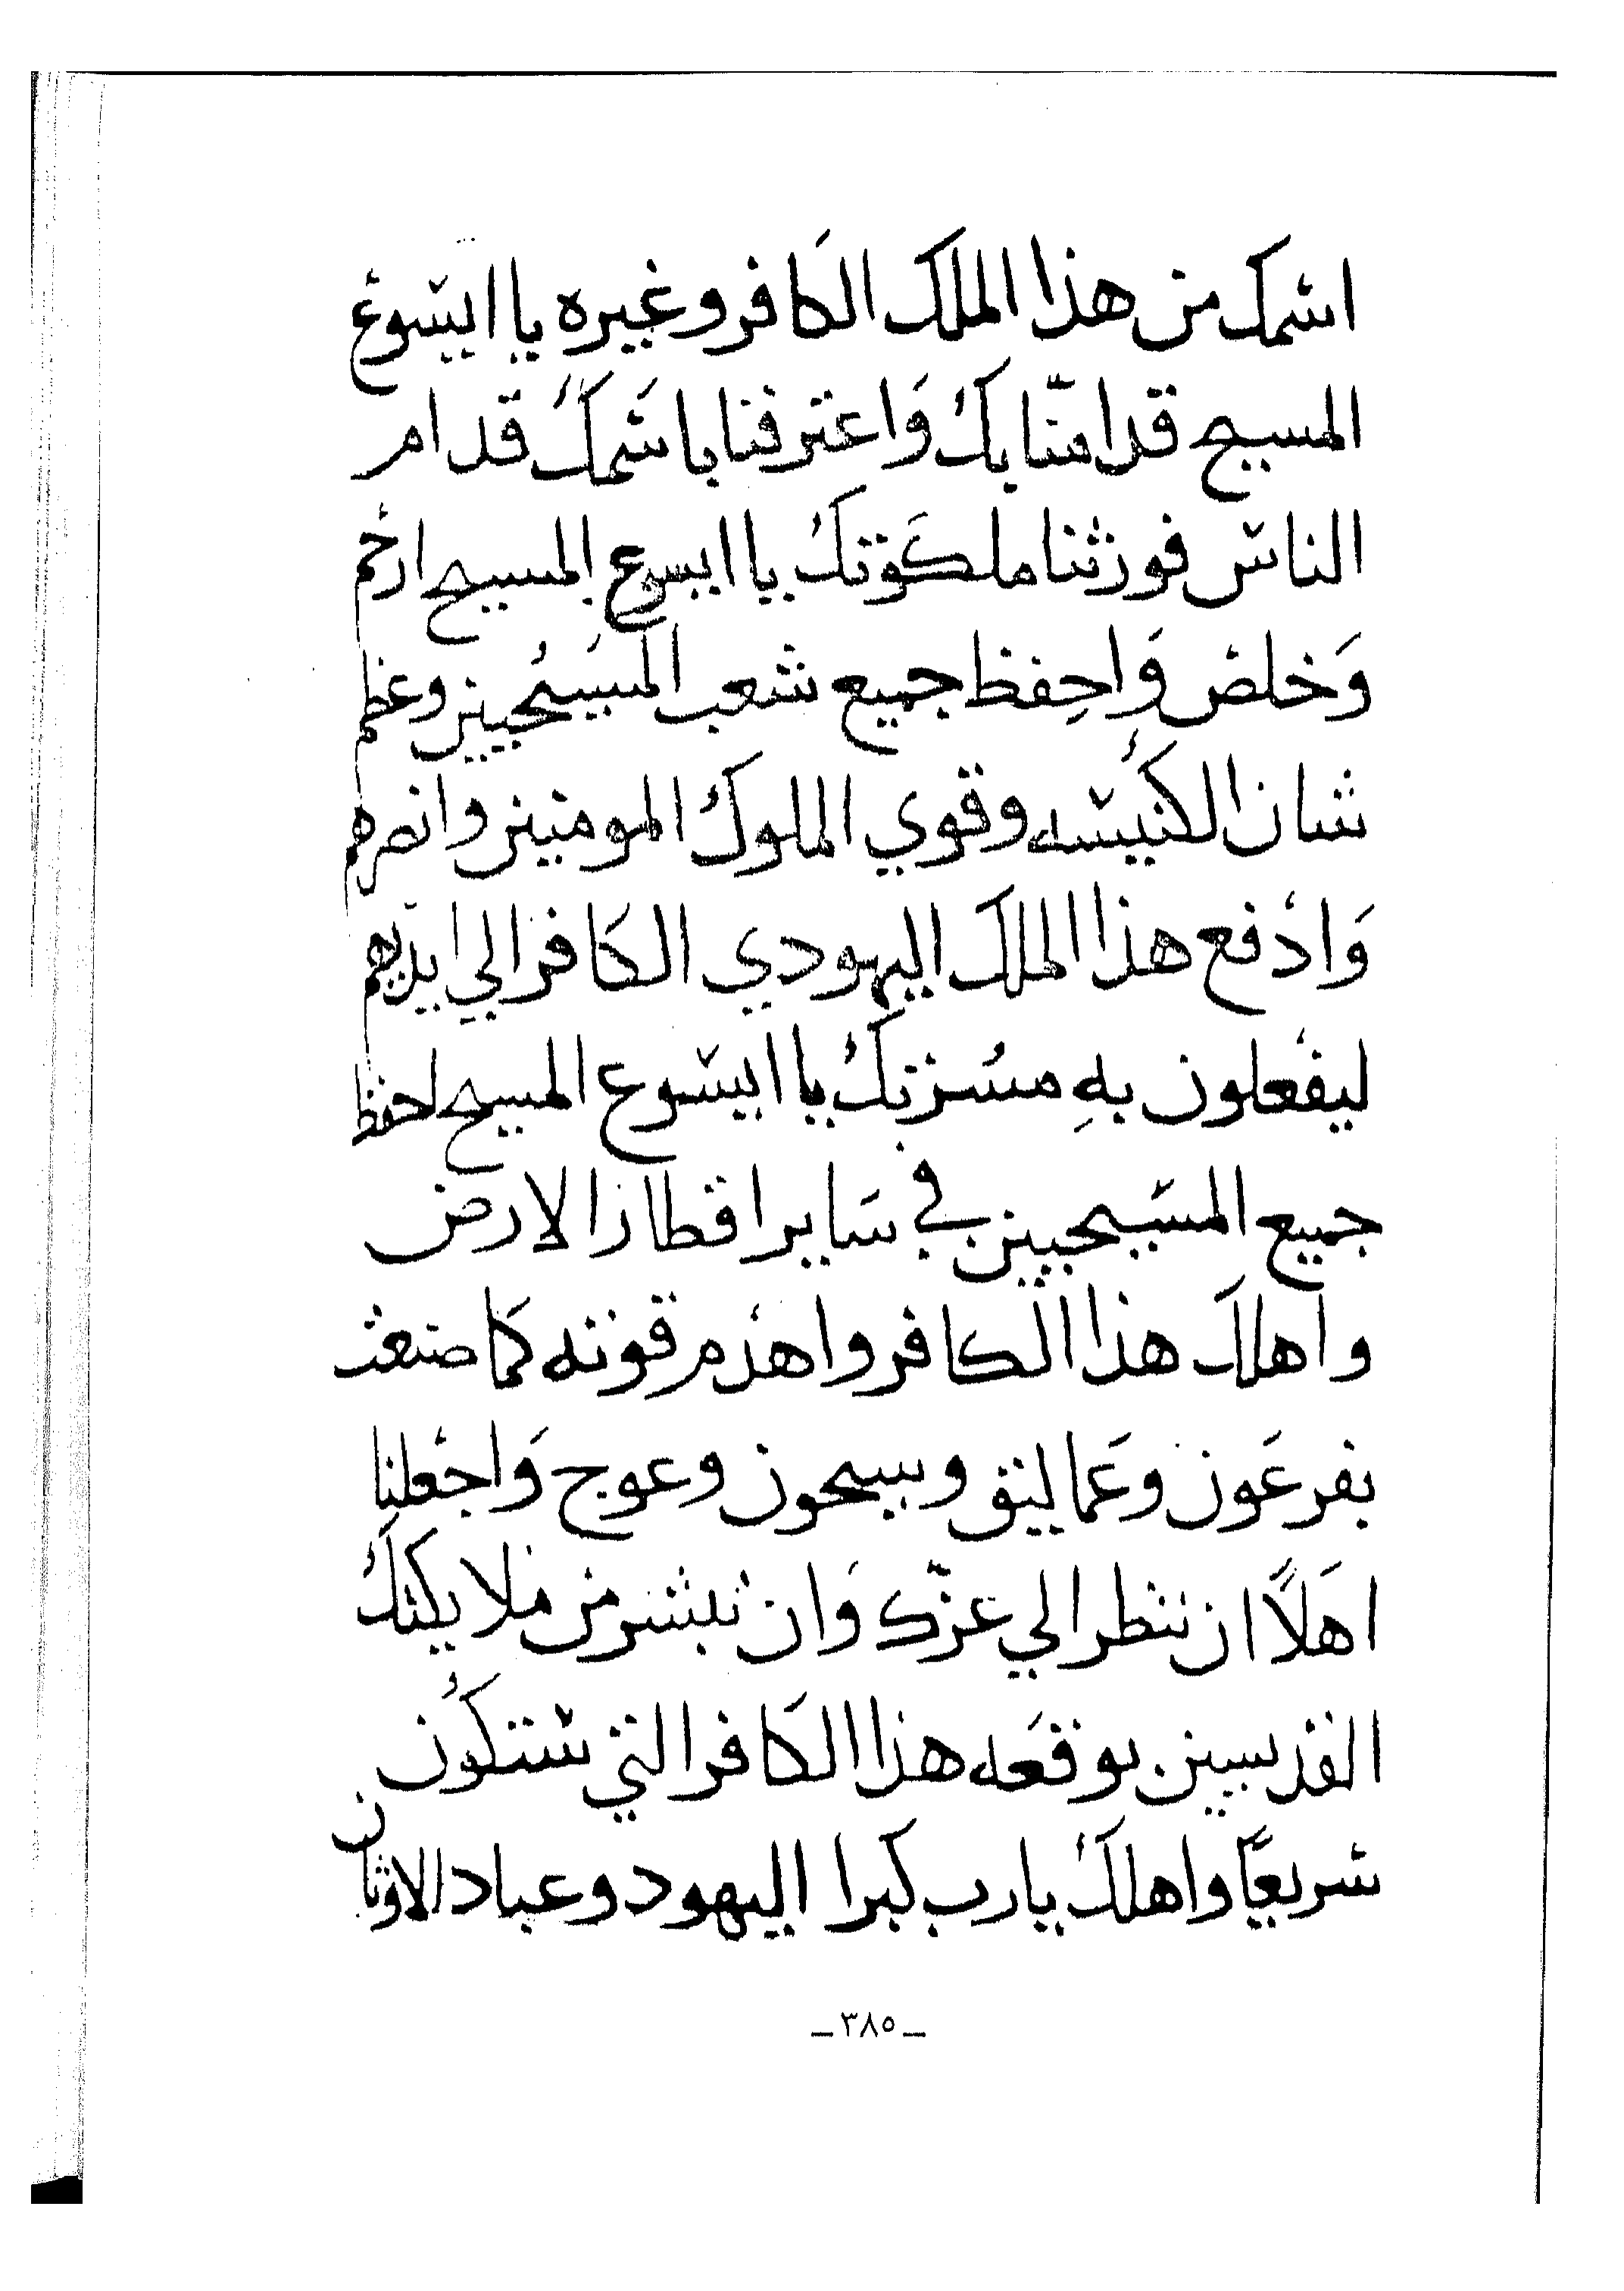 اسمك من هذا الملك الكافر وغيره يا ايسوع
المسيح قد امنّا بك وَاعترفنا باسمك قدام
الناس فورثنا ملكوتك يا ايسوع المسيح ارحم
وَخلص وَاحِفظ جميع شعب المسيحيين وعظم
شان الكنيسه وقوي الملوك المومنين وانصرهم
وَادفع هذا الملك اليهودي الكافر الي ايديهم
ليفعلون بهِ مسرتك يا ايسوع المسيح احفظ
جميع المسيحيين في ساير اقطار الارض
واهلك هذا الكافر واهدم قوته كما صنعت
بفرعَون وعَماليق وسيحون وعوج وَاجعلنا
اهَلاً ان ننظر الي عزّك وَان نبشر من ملايكتك
القديسين بوقعَه هذا الكافر التي ستكون
سريعًا واهلك يارب كبرا اليهود وعباد الاوثان
ـ ٣٨٥ ـ